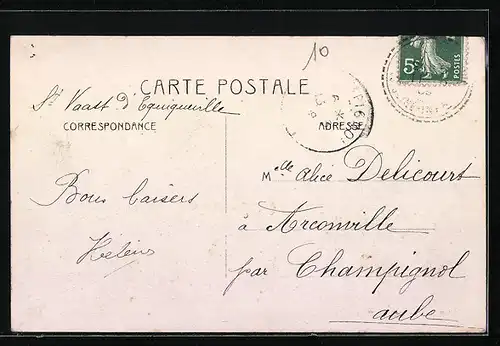 10
5c
POSTES
CARTE POSTALE
St Vaast d'Equiqueville
CORRESPONDANCE
ADRESSE
Melle Alice Delicourt
Bons baisers
à Arconville
Helene
par Champignol
aube